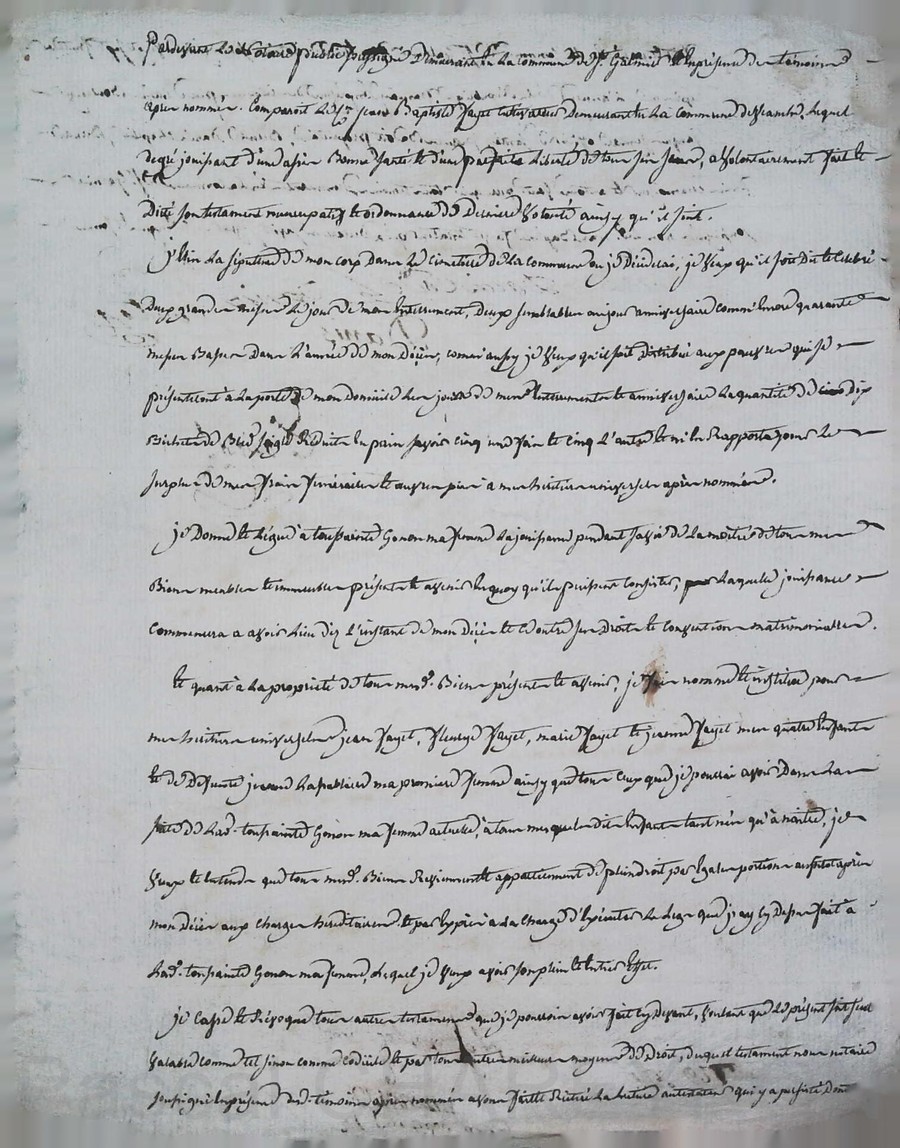 Pardevant le Notaire public soussigné Demeurant en la commune de St Galmier et en présence des temoins
après nommés. Comparoit le Cn jean Baptiste fayet cultivateur Demeurant en la Commune de lequel
de gré jouissant d'une assés Bonne santé et d'une parfaite liberté de tous ses sens, a volontairement fait et
Dicté son testament nuncupatif et ordonnance de Derniere volonté ainsy qu'il suit.
j'Elis la sepulture de mon corp Dans le cimetière de la commune ou je Décéderai, je veux qu'il soit Dit et celebré
Deux grandes messes le jour de mon Enterrement, Deux semblables au jour anniversaire comm'encore quarante
messes Basses Dans l'année de mon Décès, comm'aussy je veux qu'il soit distribué aux pauvres qui se
présenteront à la porte de mon Domicile les jours de mes Enterrement et anniversaire la quantité de dix
Bichets de Bled seigle Réduits en pain savoir cinq une fois et cinq l'autre et m'en Rapporte pour le
surplus de mes frais funéraires et œuvres pies à mes heritiers universels après nommés.
je Donne et Lègue à toussainte Gonon ma femme la jouissance pendant sa vie de la moitié de tous mes
Biens meubles et immeubles présents et avenir en quoy qu'ils puissent consister, laquelle jouissance
commencera a avoir lieu dez l'instant de mon Décès et ce outre ses Droits et conventions matrimoniales.
Et quant à la propriété de tous mesd. Biens présents et avenir, je fais nomme et institue pour
mes heritiers universels jean fayet, fleurye fayet, marie fayet et jeanne fayet mes quatre Enfants
et de Defunte jeanne ma premiere femme ainsy que tous Ceux que je pourrai avoir Dans la
suite de lad. toussainte Gonon ma femme actuelle, à tous mesquels dits Enfants tant nés qu'à naitre, je
veux et entends que tous mesd. Biens Reviennent et appartiennent de plein droit par Egales portions aussitot après
mon Décès aux charges héréditaires et par Exprès à la charge d'Exécuter le legs que j'ay cy Dessus fait à
lad. toussainte Gonon ma femme, lequel je veux avoir son plein et entier Effet.
je Casse et Révoque tous autres testaments que je pourrois avoir fait cy Devant, voulant que le présent soit seul
valable comme tel sinon comme codicile et par tous autres meilleurs moyens de Droit, duquel testament nous notaire
soussigné en présence desd. témoins après nommés avons fait et Réiteré la lecture au testateur qui y a persisté Dont